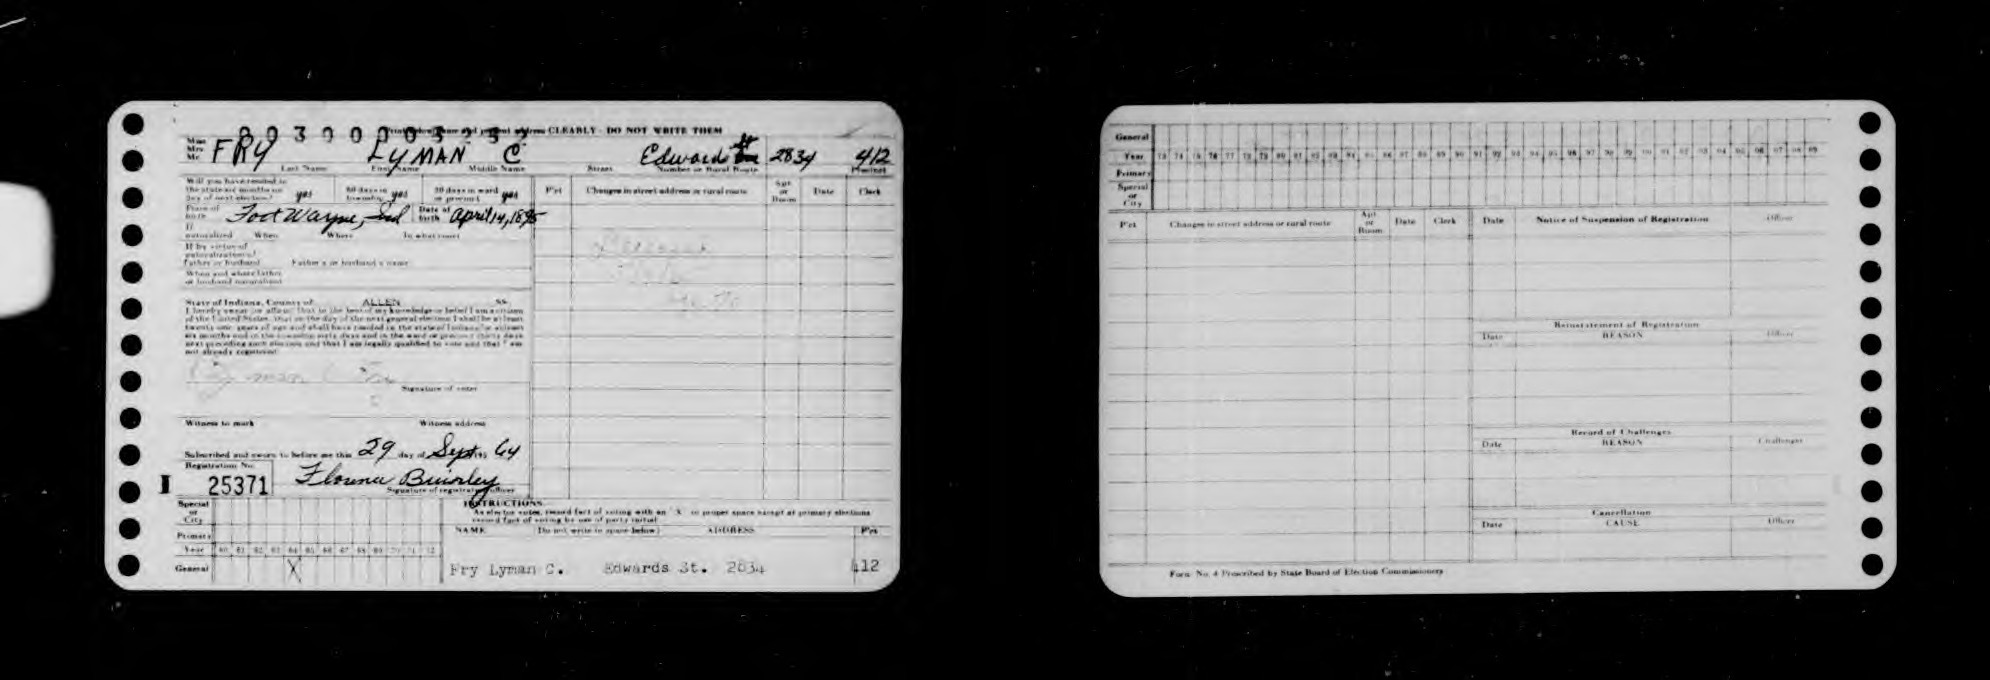 Print below name and present address CLEARLY - DO NOT WRITE THEM
Miss
Mrs
Mr. FRY LYMAN C Edwards St 2834 412
Last Name First Name Middle Name Street Number or Rural Route Precinct
Will you have resided in the state six months on day of next election? yes 60 days in township yes 30 days in ward or precinct yes
P'ct Changes in street address or rural route Apt or Room Date Clerk
Place of birth Foot Wayne, Ind Date of birth April 14, 1895
If naturalized When Where In what court
If by virtue of naturalization of Father or husband Father's or husband's name
When and where father or husband naturalized
State of Indiana, County of ALLEN SS
I hereby swear (or affirm) that to the best of my knowledge or belief I am a citizen
of the United States, that on the day of the next general election I shall be at least
twenty-one years of age and shall have resided in the state of Indiana for at least
six months and in the township sixty days and in the ward or precinct thirty days
next preceding such election and that I am legally qualified to vote and that I am
not already registered
Lyman C
Signature of voter
Witness to mark Witness address
Subscribed and sworn to before me this 29 day of Sept 195 64
Registration No.
I 25371
Florence
Signature of registration officer
Special or City
Primary
Year 60 61 62 63 64 65 66 67 68 69 70 71 72
General X
INSTRUCTIONS
As elector votes, record fact of voting with an "X" in proper space except at primary elections
record fact of voting by use of party initial
NAME (Do not write in space below) ADDRESS P'ct
Fry Lyman C. Edwards St. 2834 412
General
Year 73 74 75 76 77
Primary
Special or City
P'ct Changes in street address or rural route Apt or Room Date Clerk
Date Notice of Suspension of Registration Officer
Reinstatement of Registration
Date REASON Officer
Record of Challenges
Date REASON Challenger
Cancellation
Date CAUSE Officer
Form No. 4 Prescribed by State Board of Election Commissioners